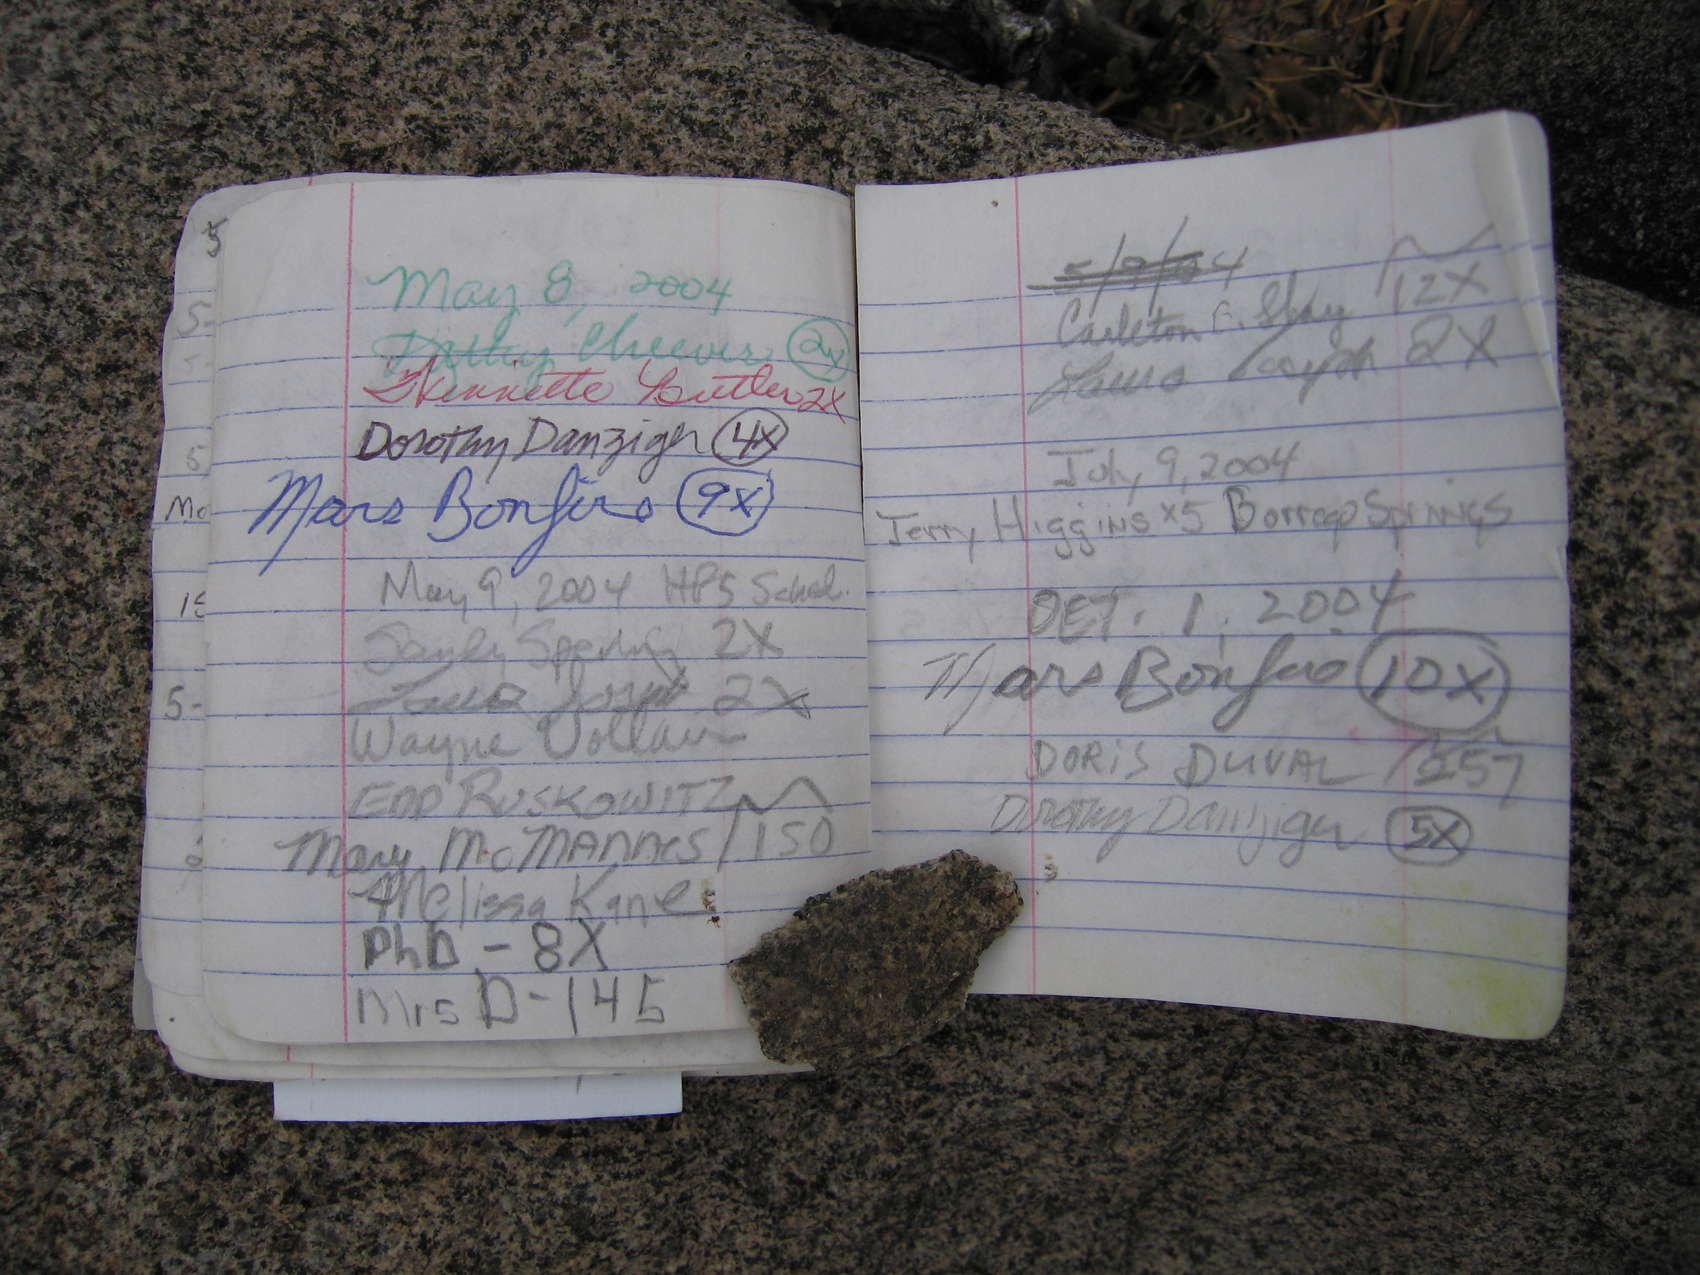 5
5-
5
Mo
15
5-
May 8, 2004
Cheever 2x
Henriette Butler 2x
Dorothy Danziger 4X
Mars Bonfire 9X
May 9, 2004 HPS
Sandy Sperling 2X
Laura Joseph 2X
Wayne Vollaire
RUSKOWITZ
Mary McMannes 150
Melissa Kane
PhD - 8X
Mrs D - 145
5/9/04
Carleton 12X
Laura Joseph 2X
July 9, 2004
Terry Higgins x5 Borrego Springs
OCT. 1, 2004
Mars Bonfire 10X
DORIS DUVAL 257
Dorothy Danziger 5X